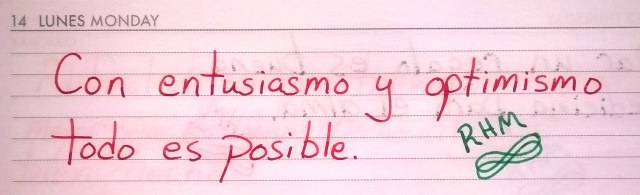 14 LUNES MONDAY
Con entusiasmo y optimismo
todo es posible.
RHM